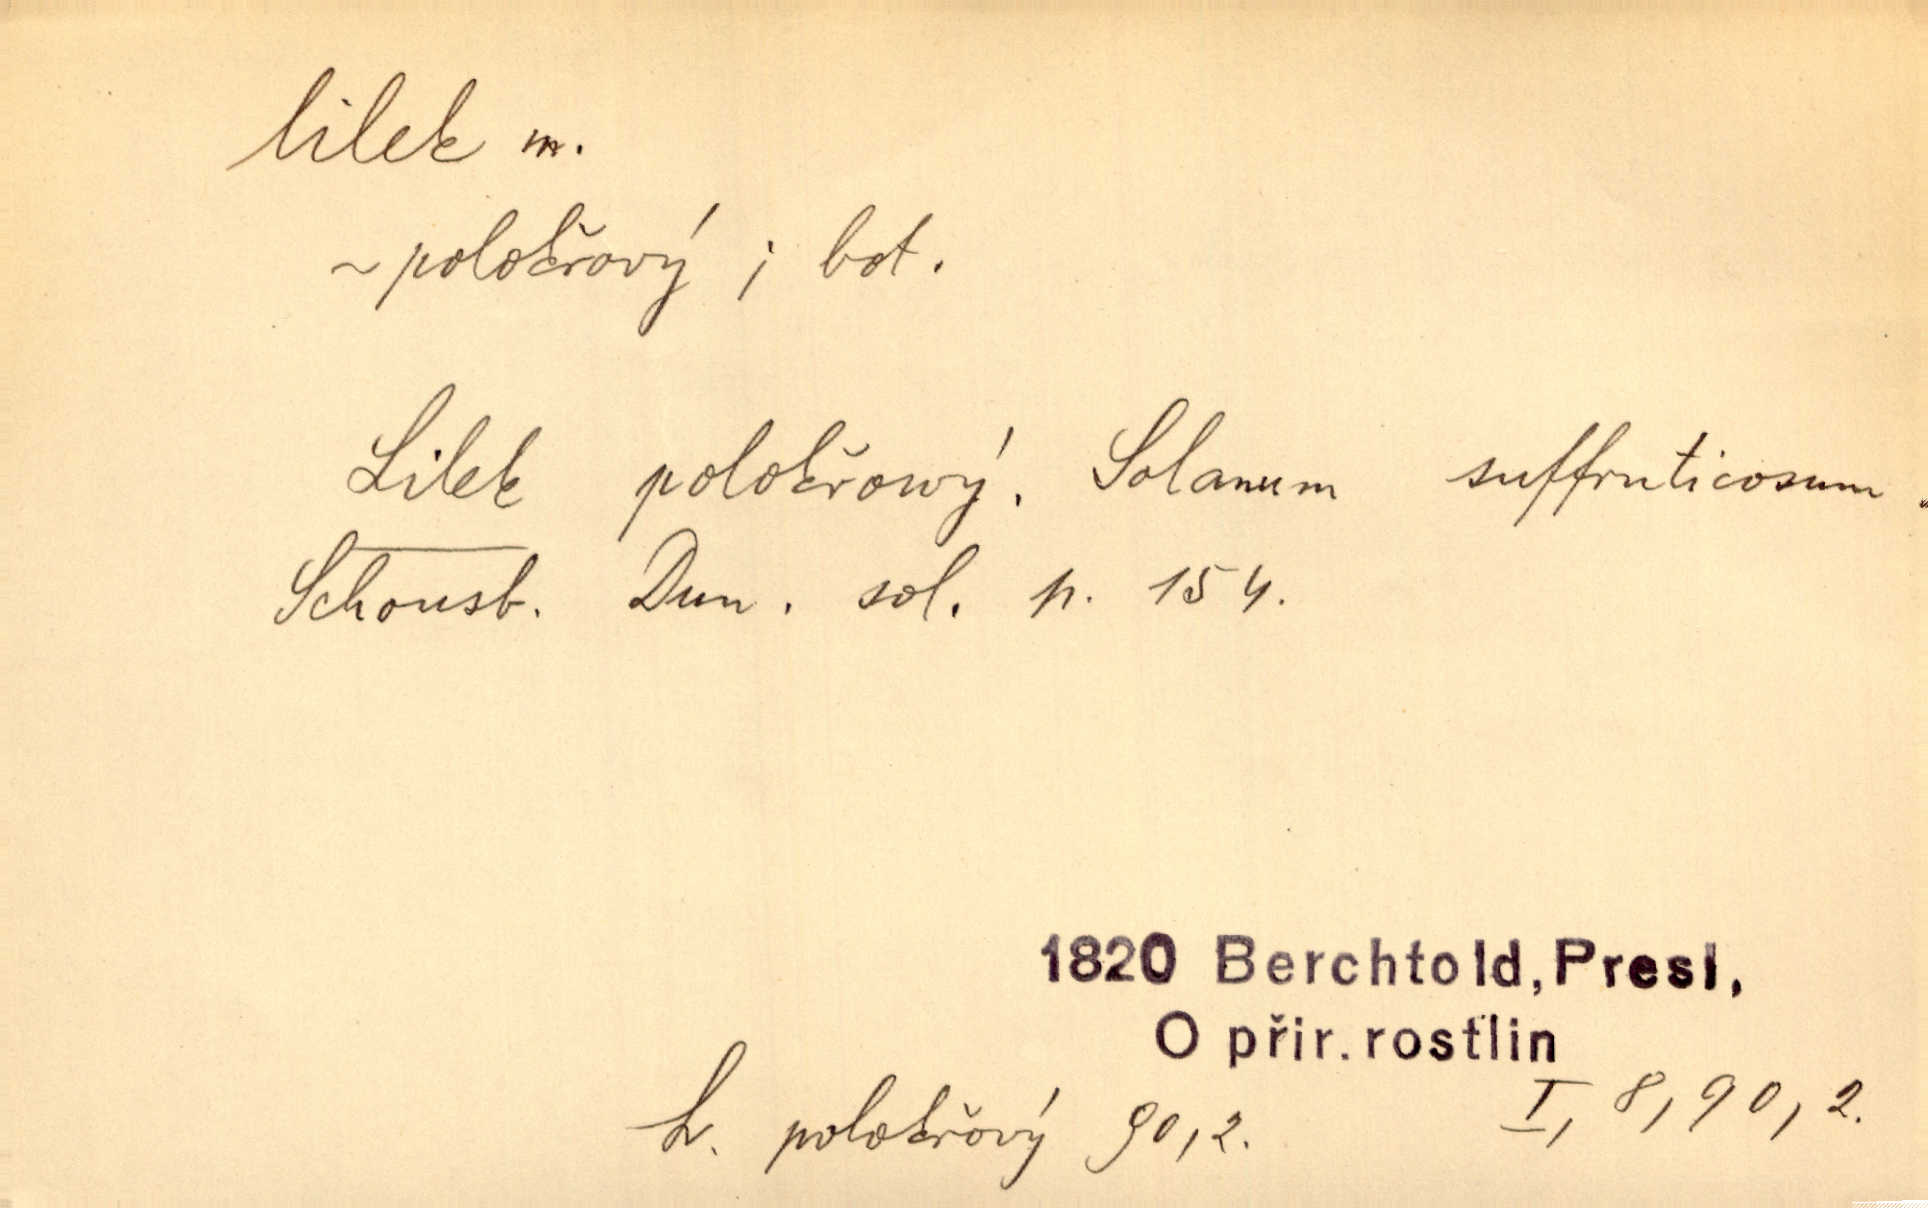 lilek m.
~polokřový ; bot.
Lilek polokřowý. Solanum suffruticosum.
Schousb. Dun. sol. p. 154.
1820 Berchtold, Presl,
O přir. rostlin
I, 8, 90, 2.
L. polokřový 90, 2.